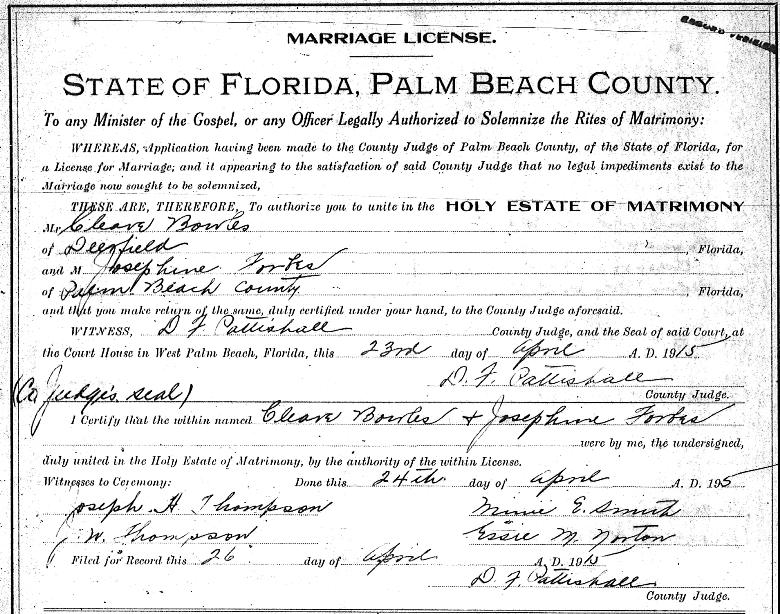 MARRIAGE LICENSE.
STATE OF FLORIDA, PALM BEACH COUNTY.
To any Minister of the Gospel, or any Officer Legally Authorized to Solemnize the Rites of Matrimony:
WHEREAS, Application having been made to the County Judge of Palm Beach County, of the State of Florida, for
a License for Marriage; and it appearing to the satisfaction of said County Judge that no legal impediments exist to the
Marriage now sought to be solemnized,
THESE ARE, THEREFORE, To authorize you to unite in the HOLY ESTATE OF MATRIMONY
Mr Cleave Bowles
of Deerfield , Florida,
and M Josephine Forbes
of Palm Beach County , Florida,
and that you make return of the same, duly certified under your hand, to the County Judge aforesaid.
WITNESS, D F Pattishall County Judge, and the Seal of said Court, at
the Court House in West Palm Beach, Florida, this 23rd day of April A. D. 1915
D. F. Pattishall
County Judge.
(Co Judge's seal)
I Certify that the within named Cleave Bowles & Josephine Forbes
were by me, the undersigned,
duly united in the Holy Estate of Matrimony, by the authority of the within License.
Witnesses to Ceremony: Done this 24th day of April A. D. 195
Joseph H Thompson Minnie E. Smith
J. W. Thompson Essie M. Norton
Filed for Record this 26 day of April A. D. 1915
D. F. Pattishall
County Judge.